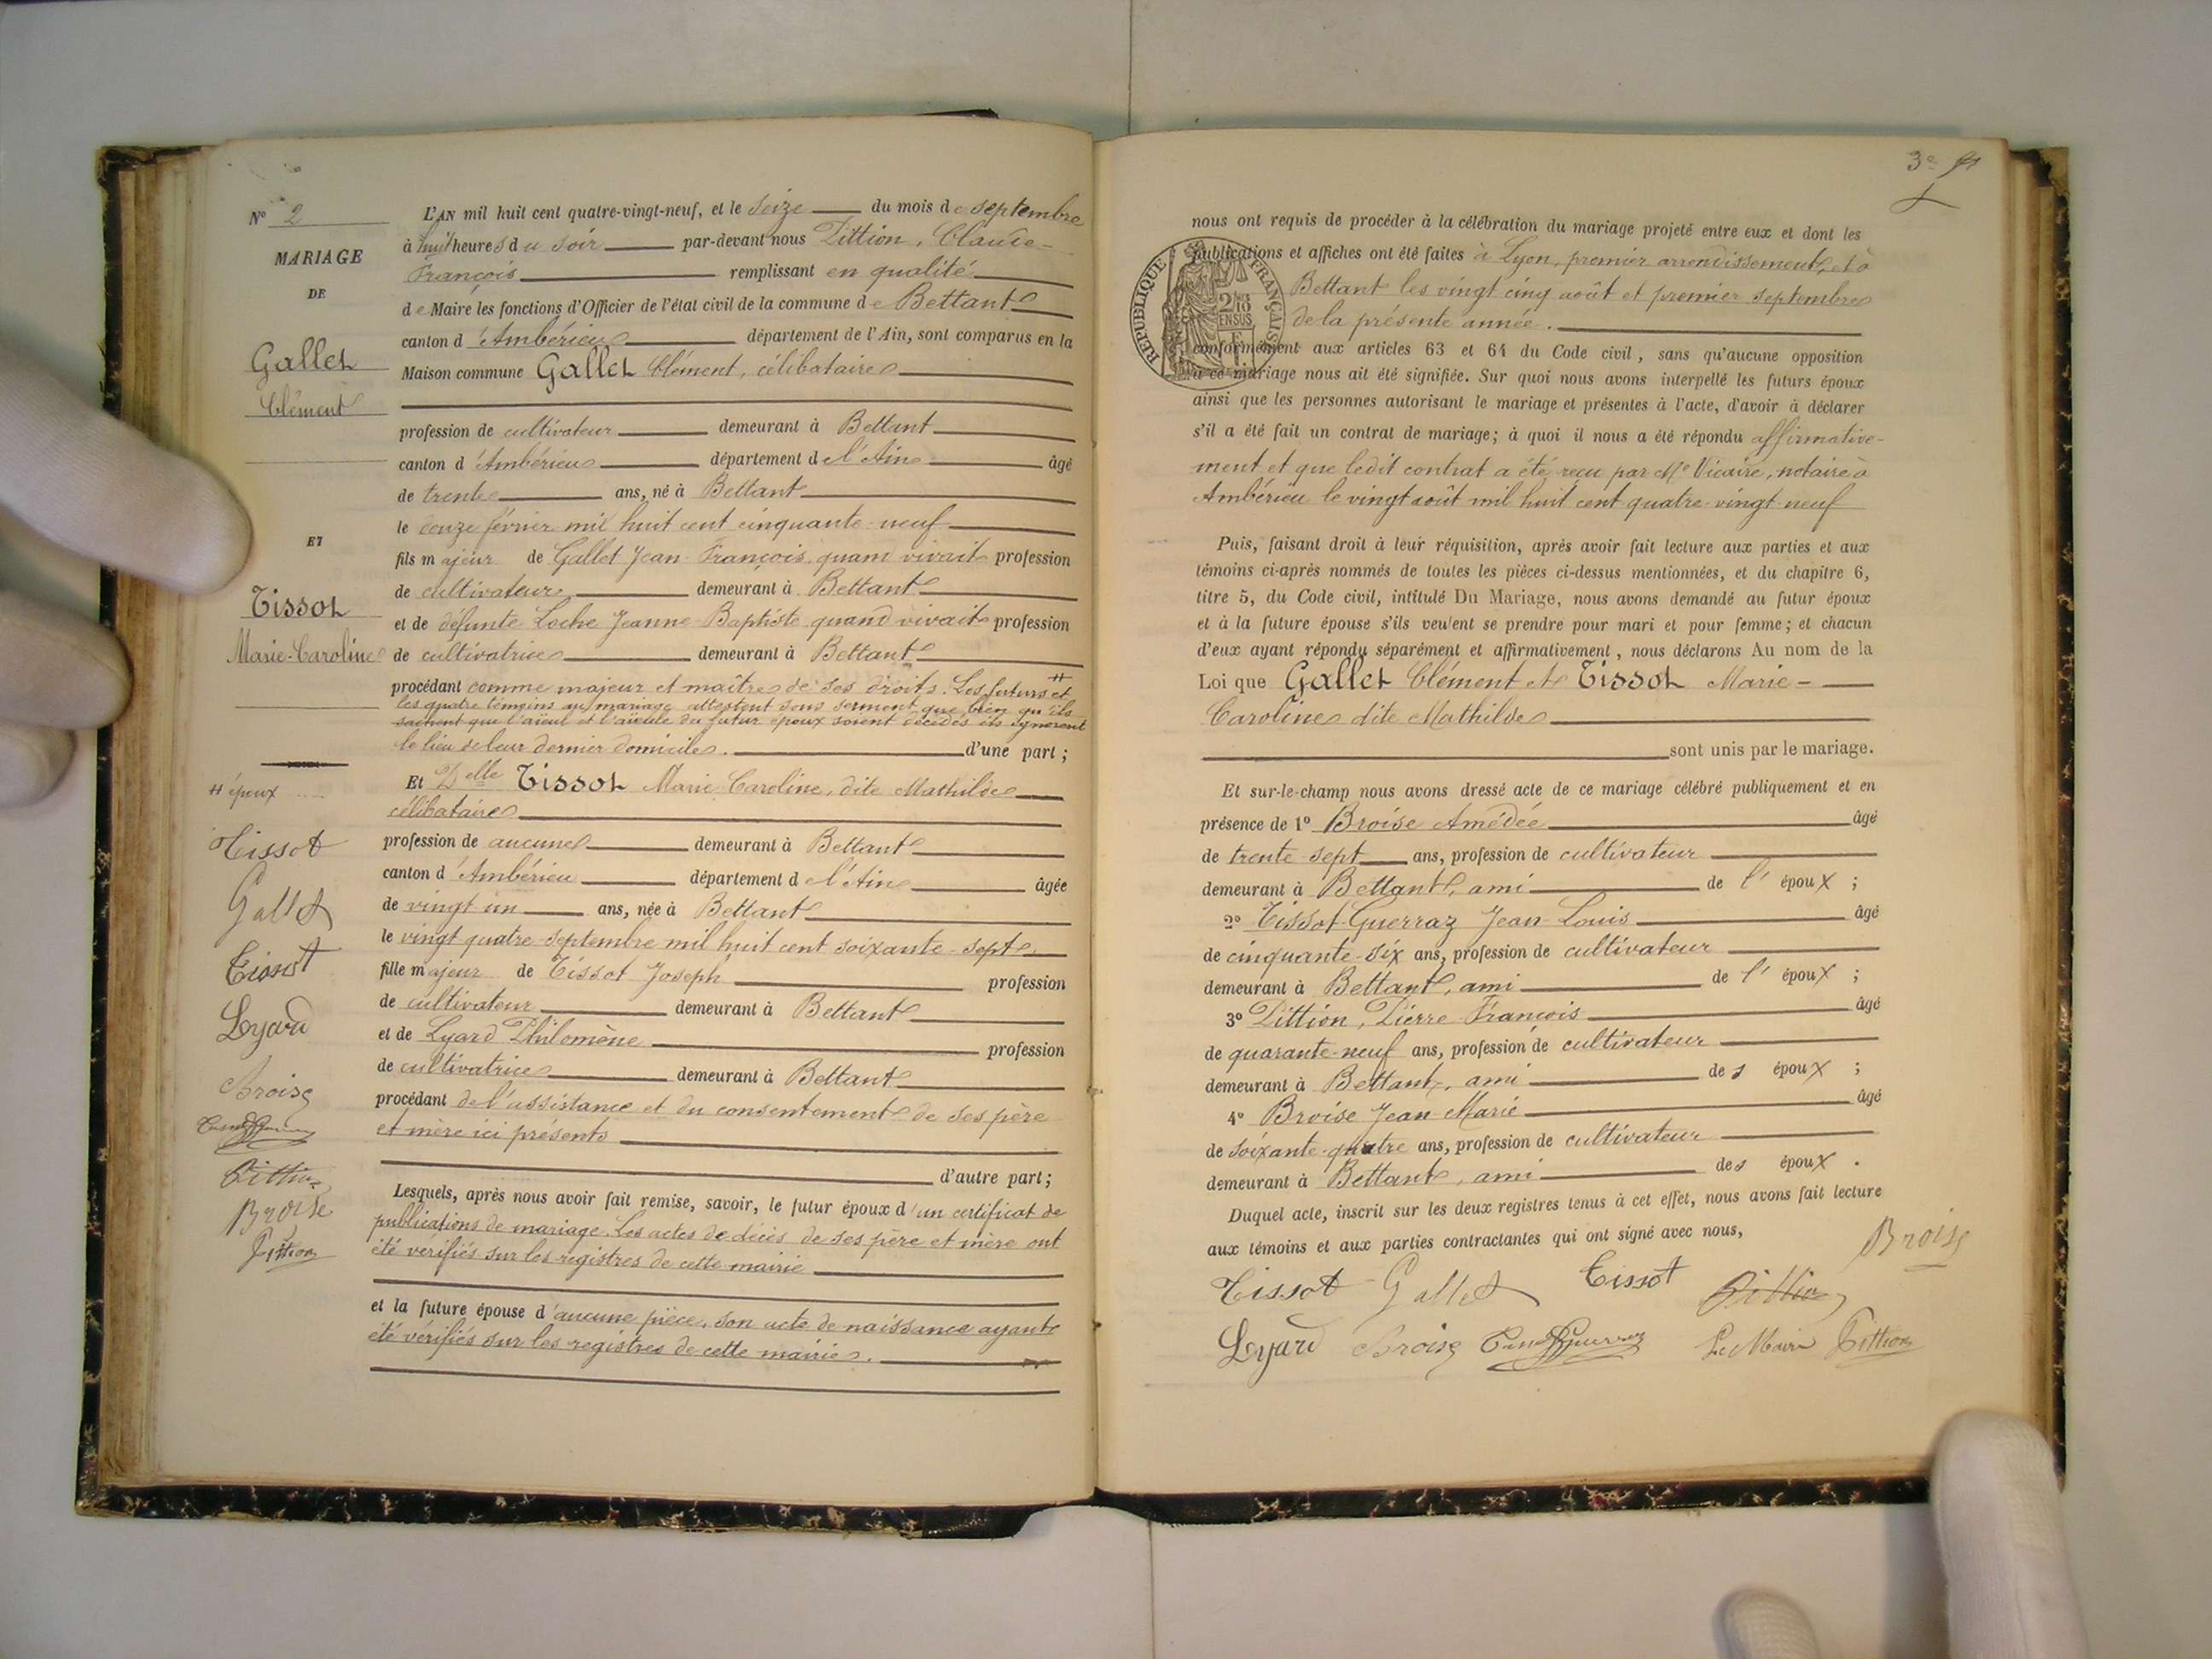 N° 2
MARIAGE
DE
Gallet
Clément
ET
Tissot
Marie-Caroline
# époux
Tissot
Gallet
Tissot
Lyard
Broise
Pittion
Broise
Pittion
L'AN mil huit cent quatre-vingt-neuf, et le seize du mois de septembre
à huit heures du soir par-devant nous Pittion, Claude-
François remplissant en qualité
de Maire les fonctions d'Officier de l'état civil de la commune de Bettant
canton d'Ambérieu département de l'Ain, sont comparus en la
Maison commune Gallet Clément, célibataire
profession de cultivateur demeurant à Bettant
canton d'Ambérieu département de l'Ain âgé
de trente ans, né à Bettant
le douze février mil huit cent cinquante-neuf
fils majeur de Gallet Jean-François quand vivait profession
de cultivateur demeurant à Bettant
et de défunte Loche Jeanne-Baptiste quand vivait profession
de cultivatrice demeurant à Bettant
procédant comme majeur et maître de ses droits. Les futurs # et
les quatre témoins au mariage attestent sous serment que bien qu'ils
sachent que l'aïeul et l'aïeule du futur époux soient décédés ils ignorent
le lieu de leur dernier domicile. d'une part ;
Et Delle Tissot Marie Caroline, dite Mathilde
célibataire
profession de aucune demeurant à Bettant
canton d'Ambérieu département de l'Ain âgée
de vingt un ans, née à Bettant
le vingt quatre septembre mil huit cent soixante-sept
fille majeur de Tissot Joseph profession
de cultivateur demeurant à Bettant
et de Lyard Philomène profession
de cultivatrice demeurant à Bettant
procédant de l'assistance et du consentement de ses père
et mère ici présents
d'autre part ;
Lesquels, après nous avoir fait remise, savoir, le futur époux d'un certificat de
publications de mariage. Les actes de décès de ses père et mère ont
été vérifiés sur les registres de cette mairie
et la future épouse d'aucune pièce, son acte de naissance ayant
été vérifiés sur les registres de cette mairie.
3e
nous ont requis de procéder à la célébration du mariage projeté entre eux et dont les
publications et affiches ont été faites à Lyon, premier arrondissement, et à
Bettant les vingt cinq août et premier septembre
de la présente année.
RÉPUBLIQUE FRANÇAISE
2/10
EN SUS
conformément aux articles 63 et 64 du Code civil, sans qu'aucune opposition
à ce mariage nous ait été signifiée. Sur quoi nous avons interpellé les futurs époux
ainsi que les personnes autorisant le mariage et présentes à l'acte, d'avoir à déclarer
s'il a été fait un contrat de mariage; à quoi il nous a été répondu affirmative-
ment et que ledit contrat a été reçu par Me Vicaire, notaire à
Ambérieu le vingt août mil huit cent quatre-vingt-neuf
Puis, faisant droit à leur réquisition, après avoir fait lecture aux parties et aux
témoins ci-après nommés de toutes les pièces ci-dessus mentionnées, et du chapitre 6,
titre 5, du Code civil, intitulé Du Mariage, nous avons demandé au futur époux
et à la future épouse s'ils veulent se prendre pour mari et pour femme ; et chacun
d'eux ayant répondu séparément et affirmativement, nous déclarons Au nom de la
Loi que Gallet Clément et Tissot Marie-
Caroline dite Mathilde
sont unis par le mariage.
Et sur-le-champ nous avons dressé acte de ce mariage célébré publiquement et en
présence de 1° Broise Amédée âgé
de trente-sept ans, profession de cultivateur
demeurant à Bettant, ami de l'époux ;
2° Tissot-Guerraz Jean-Louis âgé
de cinquante-six ans, profession de cultivateur
demeurant à Bettant, ami de l'époux ;
3° Pittion, Pierre-François âgé
de quarante-neuf ans, profession de cultivateur
demeurant à Bettant, ami des époux ;
4° Broise Jean-Marie âgé
de soixante-quatre ans, profession de cultivateur
demeurant à Bettant, ami des époux.
Duquel acte, inscrit sur les deux registres tenus à cet effet, nous avons fait lecture
aux témoins et aux parties contractantes qui ont signé avec nous,
Broise
Tissot Gallet Tissot Pittion
Lyard Broise Le Maire Pittion